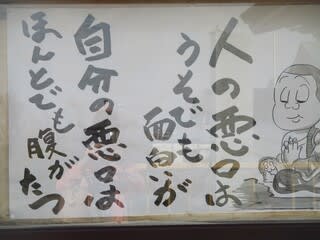 人の悪口は
うそでも
面白いが
自分の悪口は
ほんとでも
腹が
たつ